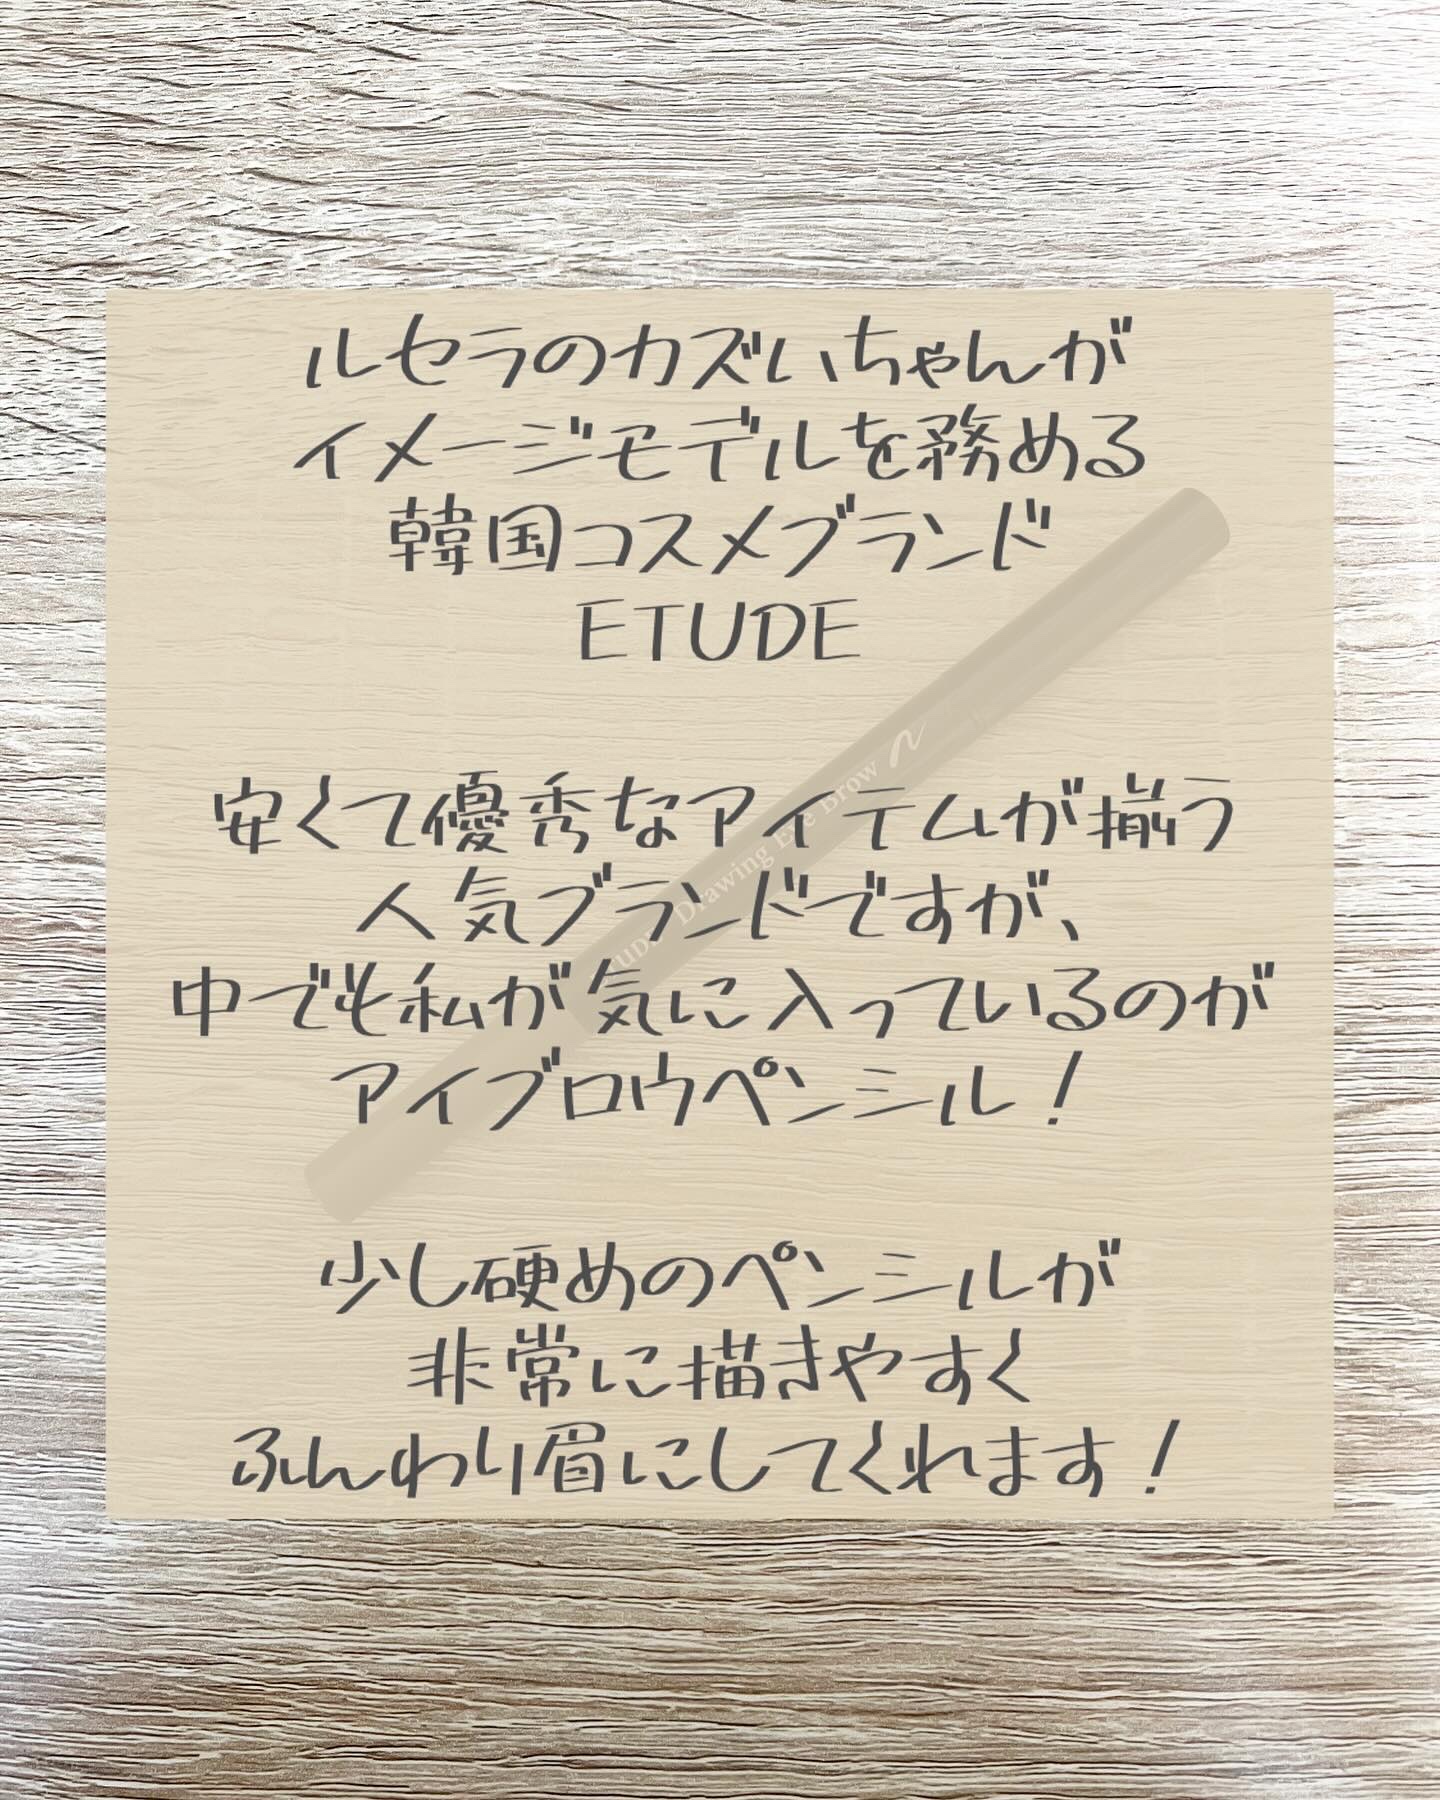 ルセラのカズハちゃんが
イメージモデルを務める
韓国コスメブランド
ETUDE
安くて優秀なアイテムが揃う
人気ブランドですが、
中でも私が気に入っているのが
アイブロウペンシル！
少し硬めのペンシルが
非常に描きやすく
ふんわり眉にしてくれます！
Drawing Eye Brow